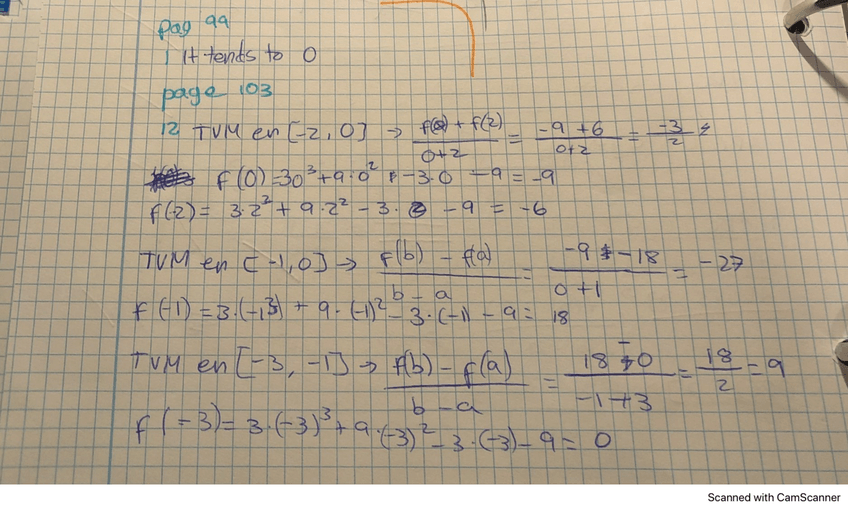 pag 99
1 It tends to 0
page 103
12 TVM en [-2, 0] → f(0) + f(2) / 0+2 = -9 +6 / 0+2 = -3 / 2
f(0) = 30³ + 9·0² -3·0 -9 = -9
f(-2) = 3·2³ + 9·2² - 3·2 - 9 = -6
TVM en [-1,0] → f(b) - f(a) / b - a = -9 - 18 / 0 + 1 = -27
f(-1) = 3·(-1³) + 9·(-1)² - 3·(-1) - 9 = 18
TVM en [-3, -1] → f(b) - f(a) / b - a = 18 - 0 / -1 + 3 = 18 / 2 = 9
f(-3) = 3·(-3)³ + 9·(-3)² - 3·(-3) - 9 = 0
Scanned with CamScanner